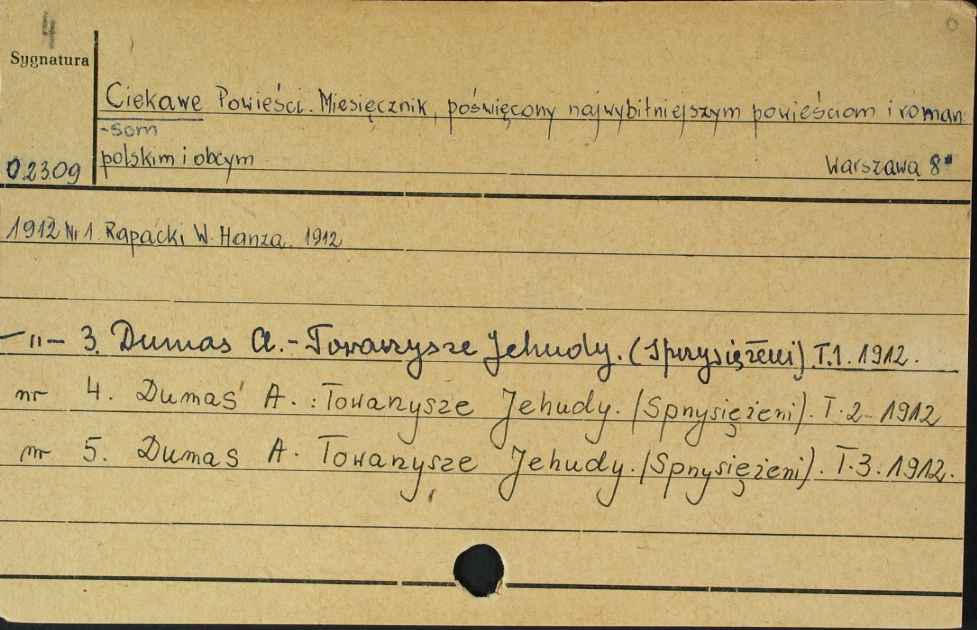 4
Sygnatura
Ciekawe Powieści. Miesięcznik, poświęcony najwybitniejszym powieściom i roman
-som
polskim i obcym Warszawa 8°
02309
1912 Nr 1. Rapacki W. Hanza. 1912
—"— 3. Dumas A. - Towarzysze Jehudy. (Sprzysiężeni) T.1. 1912.
nr 4. Dumas A. : Towarzysze Jehudy. (Sprzysiężeni). T. 2 1912
nr 5. Dumas A. Towarzysze Jehudy. (Sprzysiężeni). T. 3. 1912.